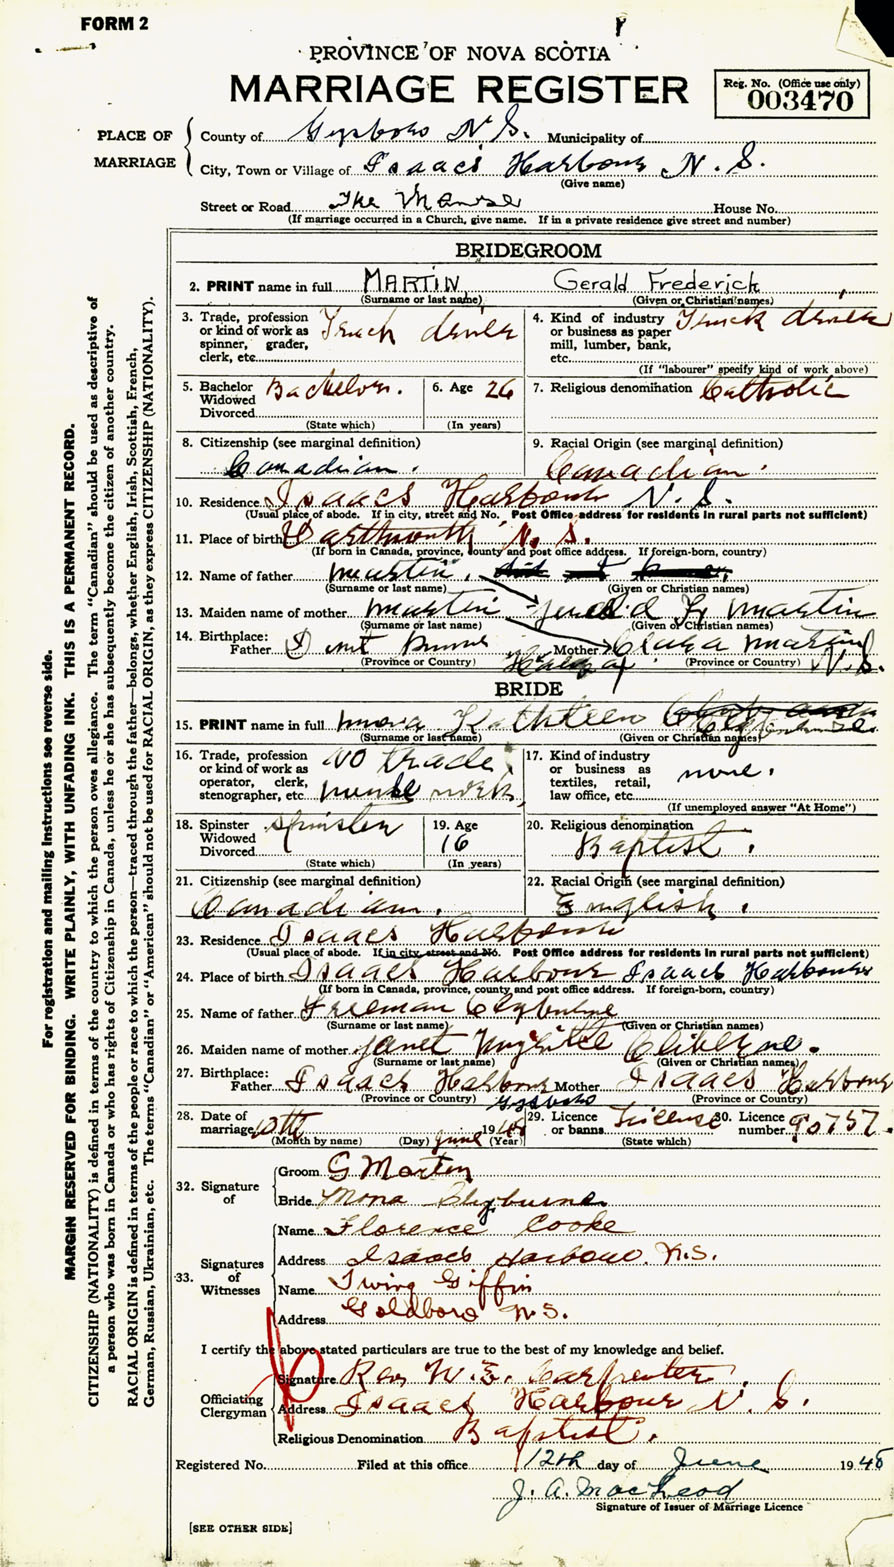 FORM 2
PROVINCE OF NOVA SCOTIA
MARRIAGE REGISTER
Reg. No. (Office use only)
003470
PLACE OF MARRIAGE
County of Guysboro N.S. Municipality of
City, Town or Village of Isaacs Harbour N.S.
(Give name)
Street or Road The Manse House No.
(If marriage occurred in a Church, give name. If in a private residence give street and number)
BRIDEGROOM
2. PRINT name in full MARTIN Gerald Frederick
(Surname or last name) (Given or Christian names)
3. Trade, profession or kind of work as spinner, grader, clerk, etc. Truck driver
4. Kind of industry or business as paper mill, lumber, bank, etc. Truck driver
(If "labourer" specify kind of work above)
5. Bachelor Widowed Divorced Bachelor.
(State which)
6. Age 26
(In years)
7. Religious denomination Catholic
8. Citizenship (see marginal definition)
Canadian.
9. Racial Origin (see marginal definition)
Canadian.
10. Residence Isaacs Harbour N.S.
(Usual place of abode. If in city, street and No. Post Office address for residents in rural parts not sufficient)
11. Place of birth Dartmouth N.S.
(If born in Canada, province, county and post office address. If foreign-born, country)
12. Name of father Martin,
(Surname or last name) (Given or Christian names)
13. Maiden name of mother Martin Martin
(Surname or last name) (Given or Christian names)
14. Birthplace:
Father Mother Clara Martin N.S.
(Province or Country) (Province or Country)
BRIDE
15. PRINT name in full Mona Kathleen Clyburne
(Surname or last name) (Given or Christian names)
16. Trade, profession or kind of work as operator, clerk, stenographer, etc. no trade work
17. Kind of industry or business as textiles, retail, law office, etc. none.
(If unemployed answer "At Home")
18. Spinster Widowed Divorced Spinster
(State which)
19. Age 16
(In years)
20. Religious denomination
Baptist.
21. Citizenship (see marginal definition)
Canadian.
22. Racial Origin (see marginal definition)
English.
23. Residence Isaacs Harbour
(Usual place of abode. If in city, street and No. Post Office address for residents in rural parts not sufficient)
24. Place of birth Isaacs Harbour Isaacs Harbour
(If born in Canada, province, county and post office address. If foreign-born, country)
25. Name of father Freeman Clyburne
(Surname or last name) (Given or Christian names)
26. Maiden name of mother Janet
(Surname or last name) (Given or Christian names)
27. Birthplace:
Father Isaacs Harbour Mother Isaacs Harbour
(Province or Country) Guysboro (Province or Country)
28. Date of marriage 10th June 1945
(Month by name) (Day) (Year)
29. Licence or banns License
(State which)
30. Licence number 90757.
32. Signature of
Groom G Martin
Bride Mona Clyburne
33. Signatures of Witnesses
Name Florence Cooke
Address Isaacs Harbour N.S.
Name Irving Giffin
Address Goldboro N.S.
I certify the above stated particulars are true to the best of my knowledge and belief.
Officiating Clergyman
Signature Rev W. E. Carpenter.
Address Isaacs Harbour N.S.
Religious Denomination Baptist.
Registered No. Filed at this office 12th day of June 1945
J. A. MacLeod
Signature of Issuer of Marriage Licence
[SEE OTHER SIDE]
For registration and mailing instructions see reverse side.
MARGIN RESERVED FOR BINDING. WRITE PLAINLY, WITH UNFADING INK. THIS IS A PERMANENT RECORD.
CITIZENSHIP (NATIONALITY) is defined in terms of the country to which the person owes allegiance. The term "Canadian" should be used as descriptive of
a person who was born in Canada or who has rights of Citizenship in Canada, unless he or she has subsequently become the citizen of another country.
RACIAL ORIGIN is defined in terms of the people or race to which the person—traced through the father—belongs, whether English, Irish, Scottish, French,
German, Russian, Ukrainian, etc. The terms "Canadian" or "American" should not be used for RACIAL ORIGIN, as they express CITIZENSHIP (NATIONALITY).